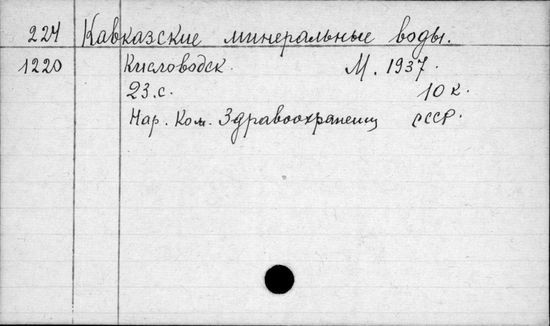 224 Кавказские минеральные воды.
1220 Кисловодск. М. 1937.
23.с. 10 к.
Нар. Ком. Здравоохранении СССР.